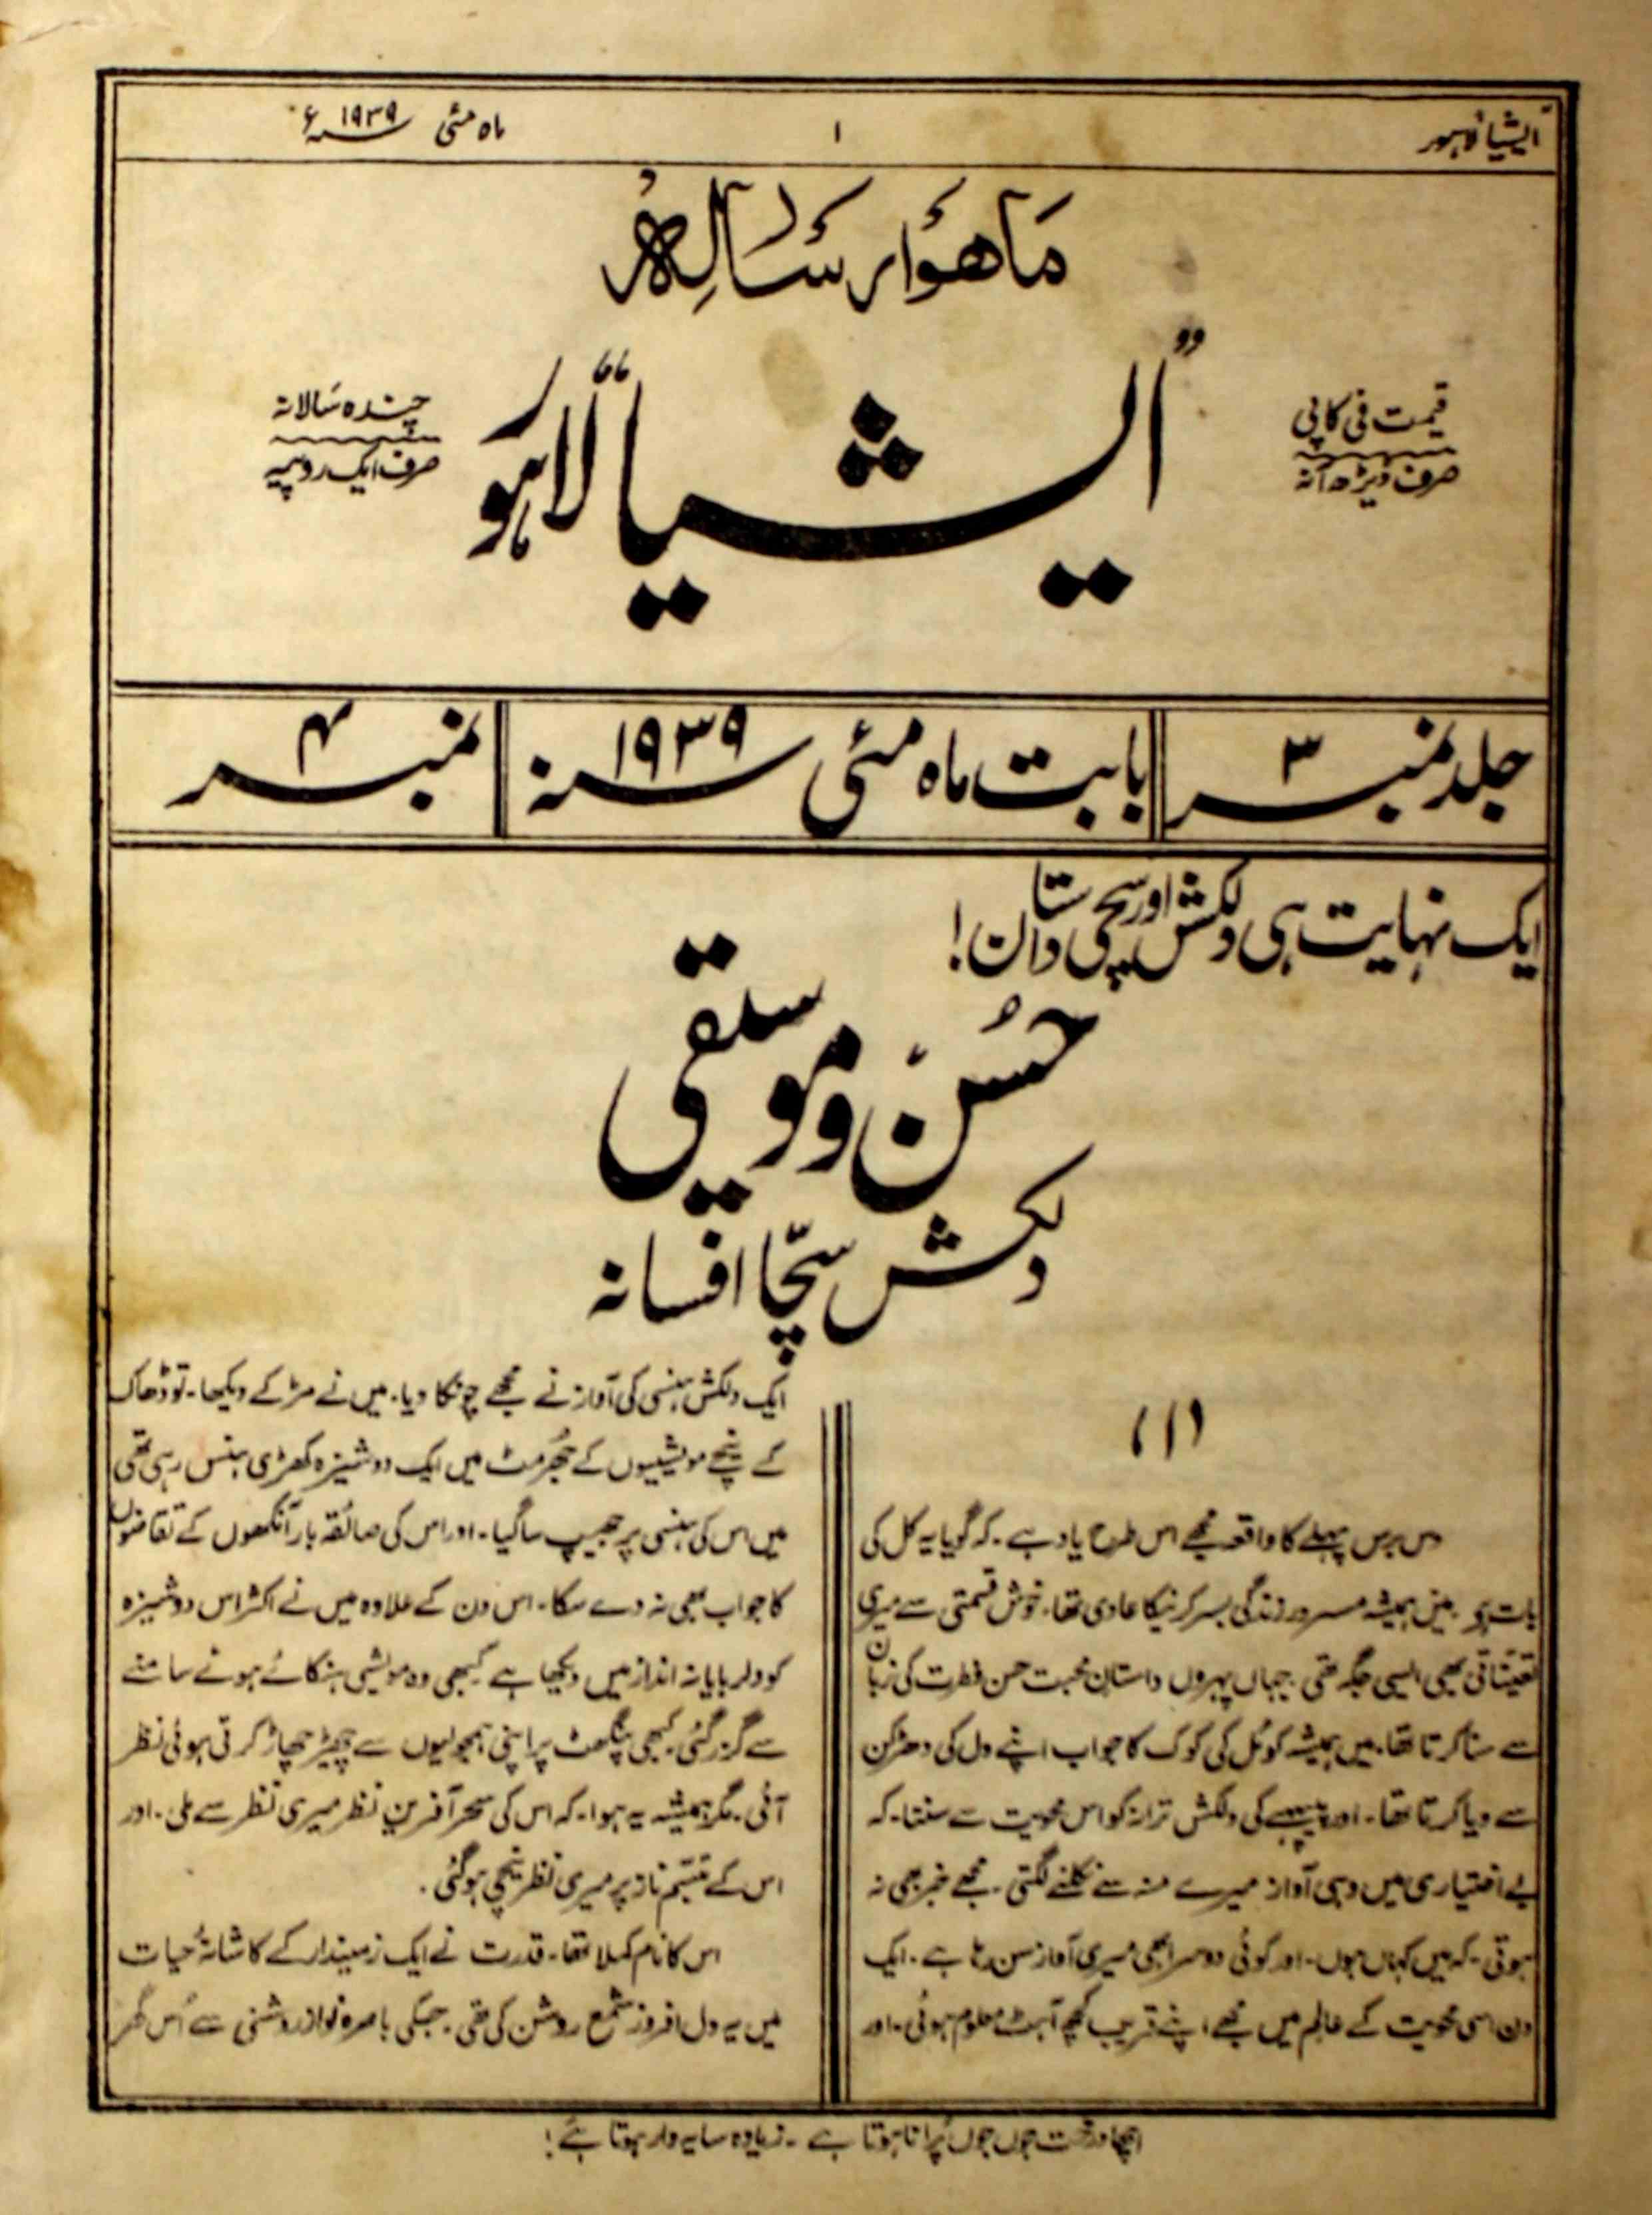 ایشیا لاہور
۱
ماہ مئی ۱۹۳۹ء
ماہوار رسالہ
قیمت فی کاپی
صرف ڈیڑھ آنہ
"ایشیا" لاہور
چندہ سالانہ
صرف ایک روپیہ
جلد نمبر ۳
بابت ماہ مئی ۱۹۳۹ء
نمبر ۴
ایک نہایت ہی دلکش اور سچی داستان!
حُسن و موسیقی
دلکش سچّا افسانہ
(۱)
دس برس پہلے کا واقعہ مجھے اس طرح یاد ہے۔ کہ گویا یہ کل کی
بات ہو۔ میں ہمیشہ مسرور زندگی بسر کرنیکا عادی تھا۔ خوش قسمتی سے میری
تعیناتی بھی ایسی جگہ تھی۔ جہاں پہروں داستانِ محبت حسن فطرت کی زبان
سے سنا کرتا تھا۔ میں ہمیشہ کوئل کی کوک کا جواب اپنے دل کی دھڑکن
سے دیا کرتا تھا۔ اور پپیہے کی دلکش ترانہ کو اس محویت سے سنتا۔ کہ
بے اختیاری میں وہی آواز میرے منہ سے نکلنے لگتی۔ مجھے خبر بھی نہ
ہوتی۔ کہ میں کہاں ہوں۔ اور کوئی دوسرا بھی میری آواز سن رہا ہے۔ ایک
دن اسی محویت کے عالم میں مجھے اپنے قریب کچھ آہٹ معلوم ہوئی۔ اور
ایک دلکش ہنسی کی آواز نے مجھے چونکا دیا۔ میں نے مڑ کے دیکھا۔ تو ڈھاک
کے نیچے مویشیوں کے جُھرمٹ میں ایک دوشیزہ کھڑی ہنس رہی تھی
میں اس کی ہنسی پر جھیپ سا گیا۔ اور اس کی صائقہ بار آنکھوں کے تقاضوں
کا جواب بھی نہ دے سکا۔ اس دن کے علاوہ میں نے اکثر اس دوشیزہ
کو دلربایانہ انداز میں دیکھا ہے۔ کبھی وہ مویشی ہنکائے ہوئے سامنے
سے گزر گئی۔ کبھی پنگھٹ پر اپنی ہمجولیوں سے چھیڑ چھاڑ کرتی ہوئی نظر
آئی۔ مگر ہمیشہ یہ ہوا۔ کہ اس کی سحر آفرین نظر میری نظر سے ملی۔ اور
اس کے تبسّم ناز پر میری نظر نیچی ہو گئی۔
اس کا نام کملا تھا۔ قدرت نے ایک زمیندار کے کاشانۂ حیات
میں یہ دل افروز شمع روشن کی تھی۔ جسکی باصرہ نواز روشنی سے اُس گھر
اچھا درخت جوں جوں پُرانا ہوتا ہے۔ زیادہ سایہ دار ہوتا ہے!